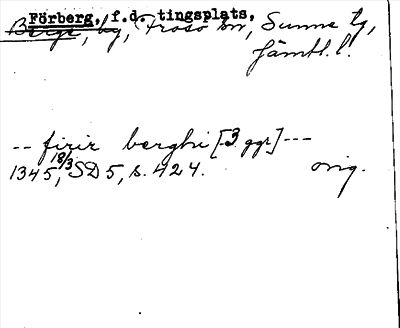 Förberg, f.d. tingsplats,
Berge, by, Frösö sn, Sunne tg,
Jämtl. l.
-- firir berghi [3 ggr] ---
1345, 18/3 SD 5, s. 424. orig.